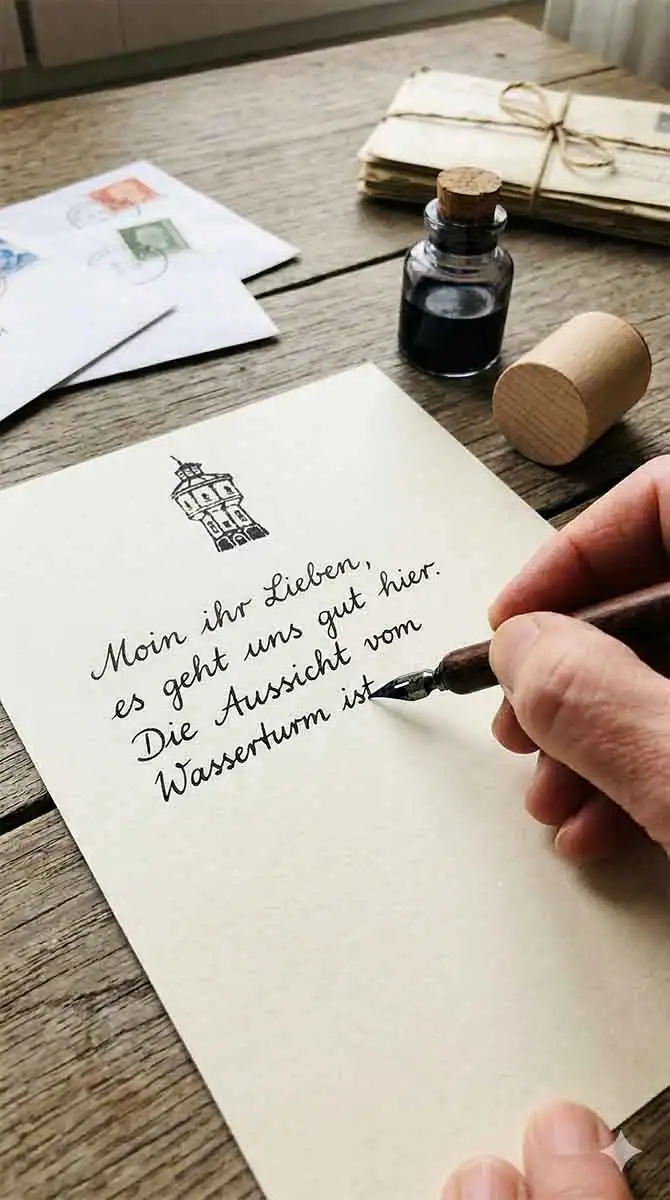 Moin ihr Lieben,
es geht uns gut hier.
Die Aussicht vom
Wasserturm ist